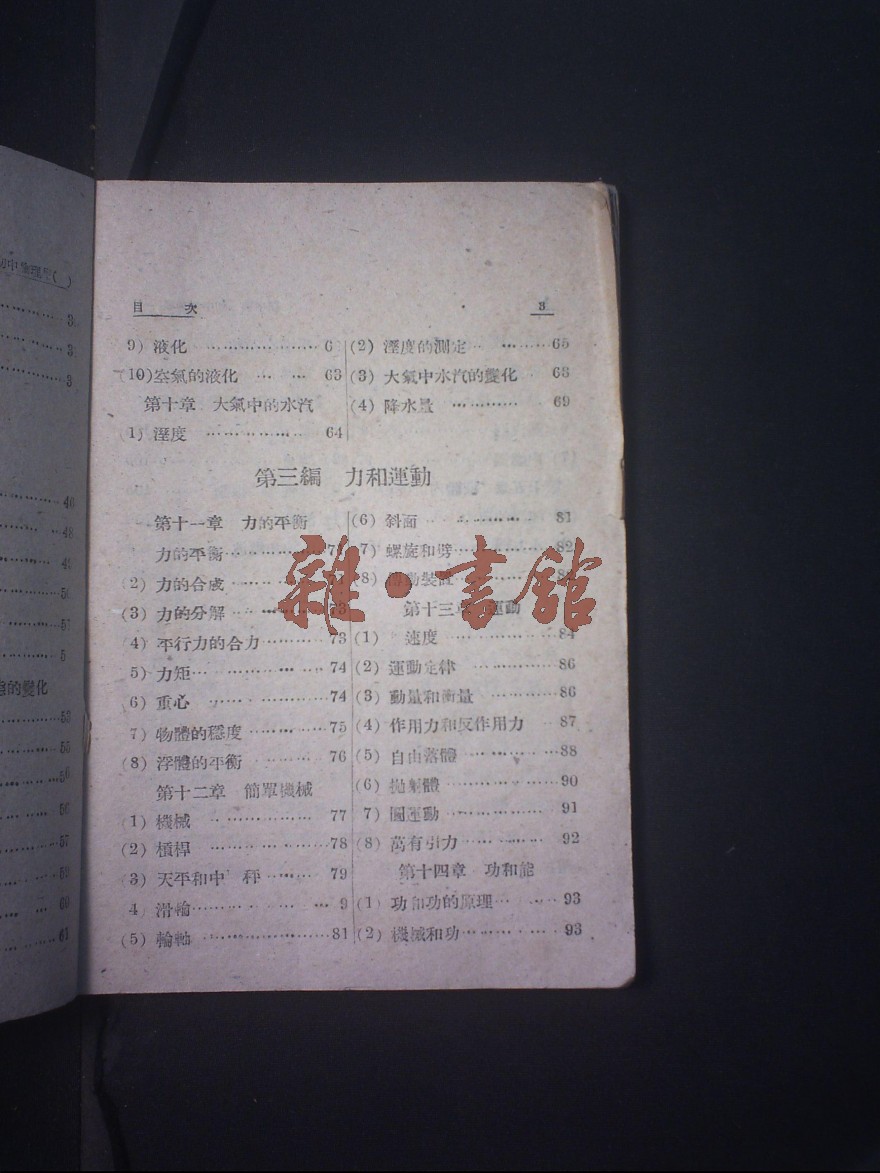 目 次 3
9) 液化 ………………… 6
(10) 空氣的液化 … … 63
第十章 大氣中的水汽
(1) 溼度 ……………… 64
(2) 溼度的測定 … ……… 65
(3) 大氣中水汽的變化 · 68
(4) 降水量 ………… 69
第三編 力和運動
第十一章 力的平衡
力的平衡 ………… 7
(2) 力的合成
(3) 力的分解 ………… 73
4) 平行力的合力 ……… 73
5) 力矩 ………… 74
6) 重心 ………… 74
7) 物體的穩度 ………… 75
(8) 浮體的平衡 ……… 76
第十二章 簡單機械
(1) 機械 ………… 77
(2) 槓桿 ………… 78
3) 天平和中 秤 ……… 79
4) 滑輪 ………… 9
(5) 輪軸 ………… 81
(6) 斜面 ………… 81
7) 螺旋和劈 ………… 82
(8) 動裝置
第十三章 運動
(1) 速度 ………… 84
(2) 運動定律 ………… 86
(3) 動量和衝量 ……… 86
(4) 作用力和反作用力 … 87
(5) 自由落體 ………… 88
(6) 拋射體 ………… 90
7) 圓運動 ………… 91
(8) 萬有引力 ………… 92
第十四章 功和能
(1) 功和功的原理 ……… 93
(2) 機械和功 ………… 93
雜·書館